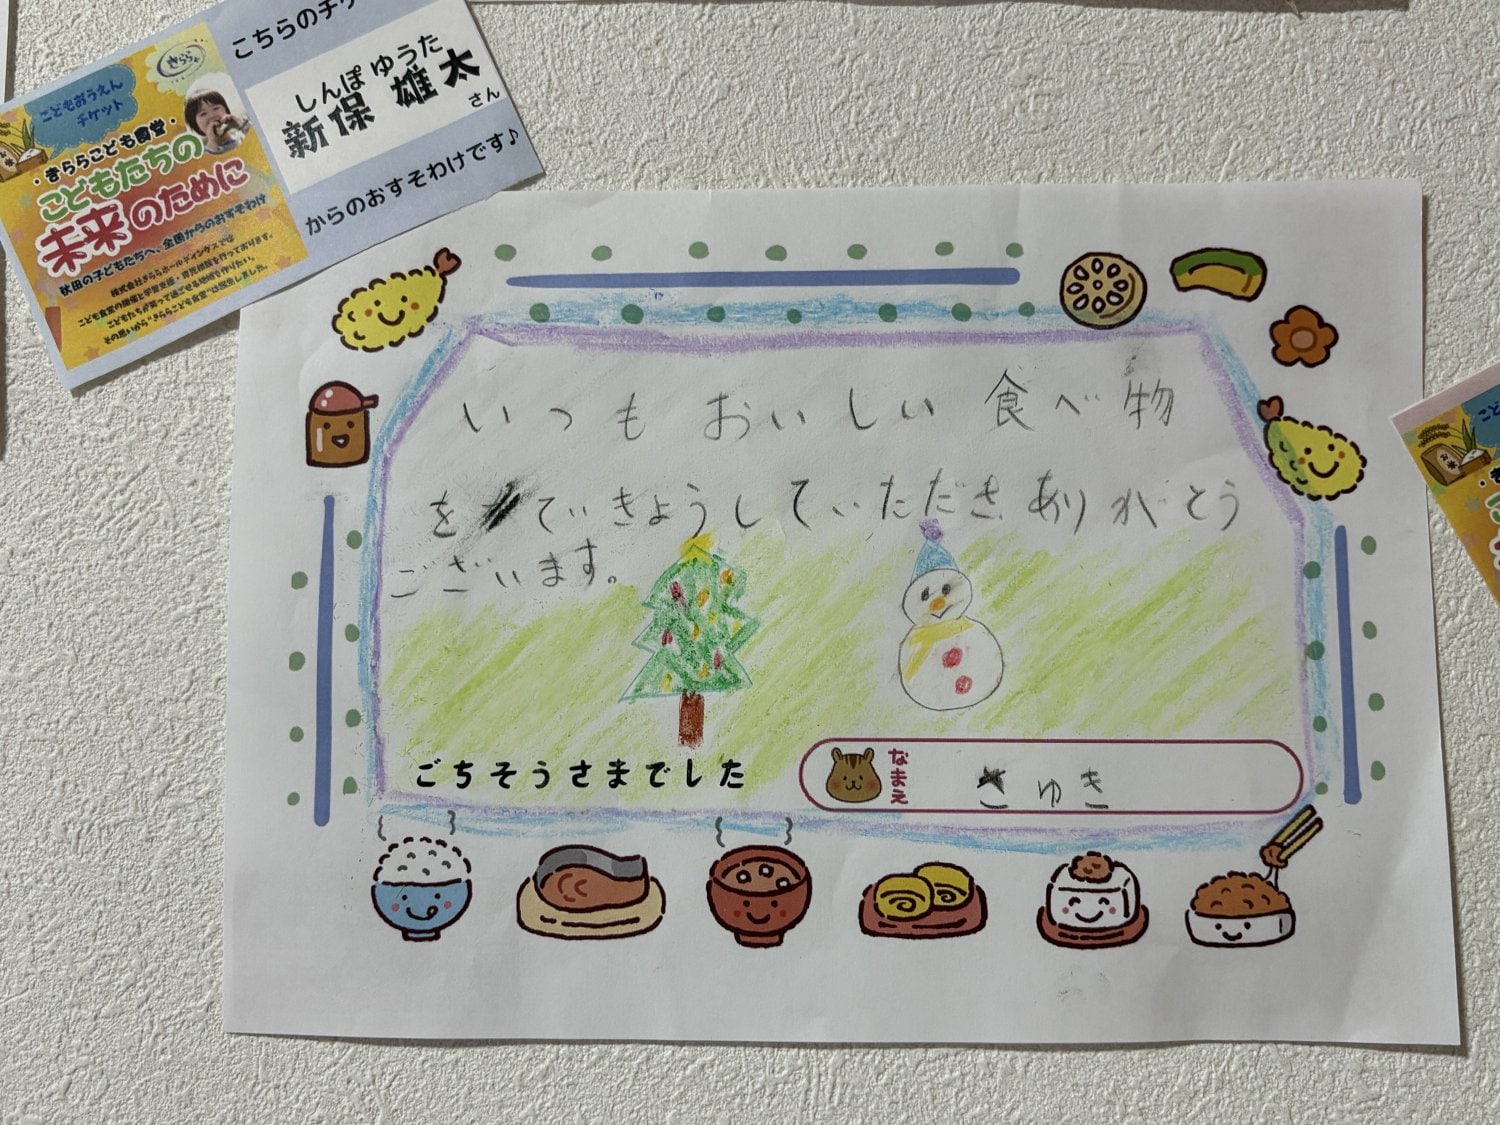 こちらのチケ
しんぽ ゆうた
新保 雄太
さん
からのおすそわけです♪
きらら
こどもおうえん
チケット
・きららこども食堂・
こどもたちの
未来のために
秋田の子どもたちへ、全国からのおすそわけ
株式会社きららホールディングスでは
こども食堂の開催と学習支援・育児相談を行っております。
こどもたちが笑って過ごせる地域を作りたい。
その思いから"きららこども食堂"は誕生しました。
いつもおいしい食べ物
をていきょうしていただきありがとう
ございます。
ごちそうさまでした
なまえ
さゆき